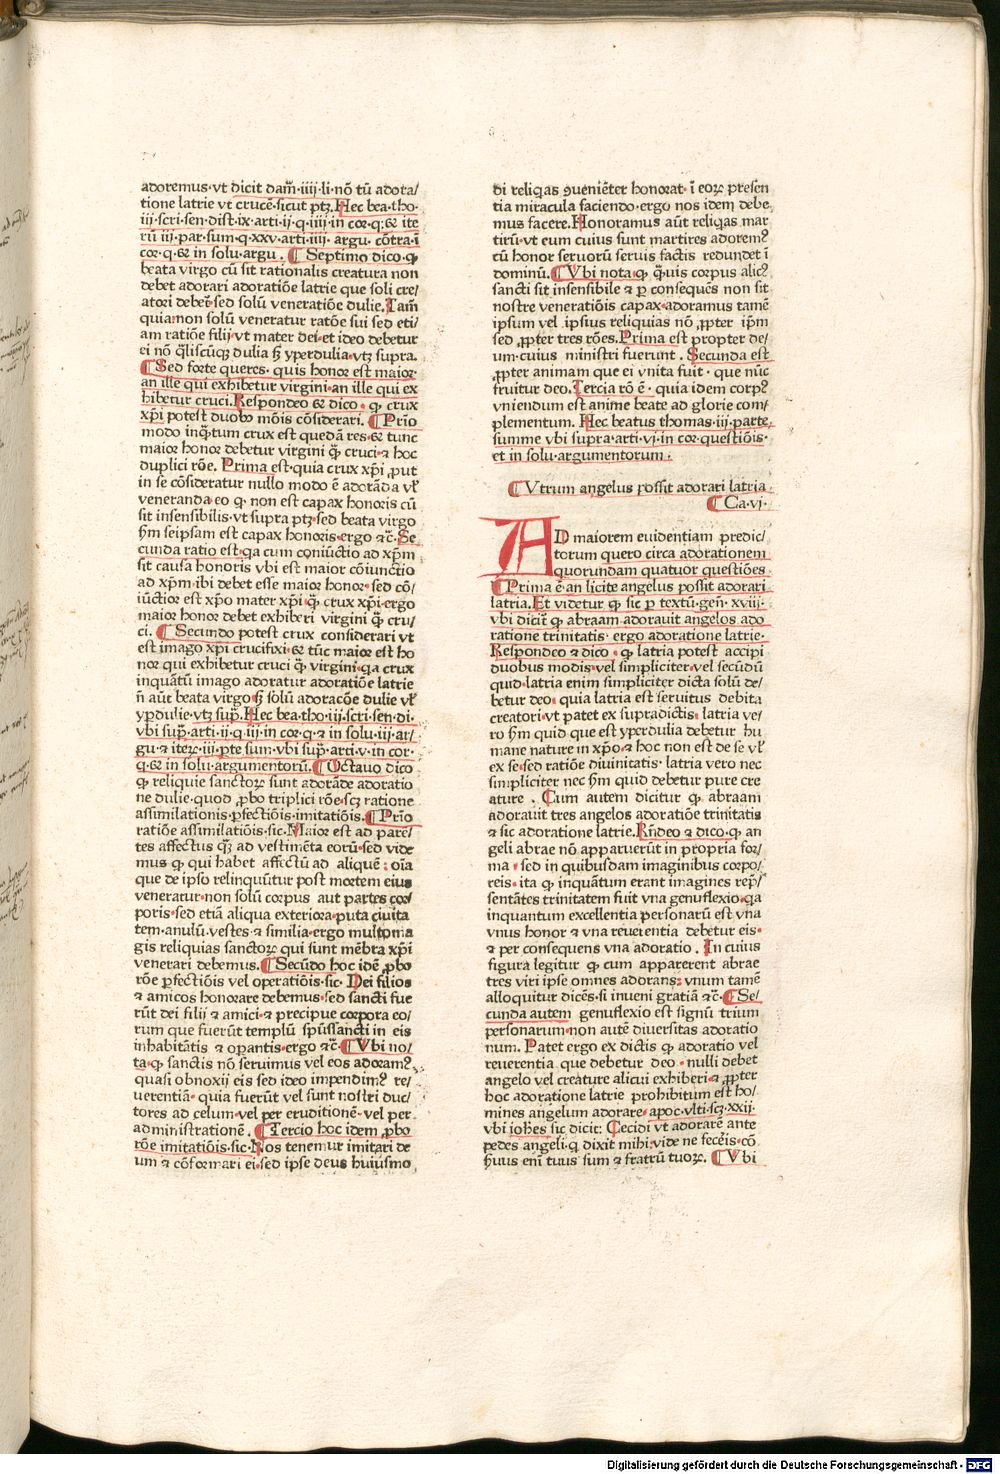 adoremus·vt dicit dam̄·iiij·li·nō tū adota/
tione latrie vt crucē·sicut ptꝫ·Hec bea·tho·
iij·scri·sen·dist·ix·arti·ij·q·iiij·in cor·q·⁊ ite
rū iij·par·sum·q·xxv·arti·iiij· argu· cōtra·ī
cor·q·⁊ in solu·argu · ¶ Septimo dico·ꝙ
beata virgo cū sit rationalis creatura non
debet adorari adoratiōe latrie que soli cre/
atori debet̄·sed solū veneratiōe dulie·Tam̄
quia·non solū veneratur ratōe sui sed eti/
am ratiōe filij·vt mater dei·et ideo debetur
ei nō q̄liscūqꝫ dulia sꝫ yperdulia·vtꝫ supra.
¶ Sed forte queres· quis honor est maior·
an ille qui exhibetur virgini·an ille qui ex
hibetur cruci. Respondeo ⁊ dico · ꝙ crux
xp̄i potest duobꝰ mōis cōsiderari. ¶ Prīo
modo inq̄tum crux est quedā res·⁊ tunc
maior honor debetur virgini q̄ cruci·⁊ hoc
duplici rōe. Prima est·quia crux xp̄i ꝓut
in se cōsideratur nullo modo ē adorāda vl̓
veneranda·eo ꝙ non est capax honoris cū
sit insensibilis·vt supra ptꝫ·sed beata virgo
ẜm seipsam est capax honoris·ergo ⁊c̄·Se
cunda ratio est·qa cum coniūctio ad xp̄m
sit causa honoris vbi est maior cōiunctio
ad xp̄m·ibi debet esse maior honor·sed cō/
iūctior est xp̄o mater xp̄i·q̄ crux xp̄i·ergo
maior honor debet exhiberi virgini q̄ cru/
ci. ¶ Secundo potest crux considerari vt
est imago xp̄i crucifixi·⁊ tūc maior est ho
nor qui exhibetur cruci q̄ virgini·qa crux
inquātū imago adoratur adoratiōe latrie
n̄ aūt beata virgo·sꝫ solū adoracōe dulie vl̓
yꝑdulie·vtꝫ sup̄. Hec bea·tho·iij·scri·sen·di·
vbi sup̄·arti·ij·q·iij·in cor·q·⁊ in solu·iij·ar/
gu·⁊ iteꝝ·iij·ꝑte sum·vbi sup̄·arti·v·in cor·
q·⁊ in solu·argumentorū. ¶ Octauo dico
ꝙ reliquie sanctoꝝ sunt adorāde adoratio
ne dulie·quod ꝓbo triplici rōe·scꝫ ratione
assimilationis·ꝑfectiōis·imitatiōis. ¶ Prīo
ratiōe assimilatiōis·sic·Maior est ad paren̄/
tes affectus qꝫ ad vestimēta eorū·sed vide
mus ꝙ qui habet affectū ad aliquē : oīa
que de ipso relinquūtur post mortem eius
veneratur·non solū corpus aut partes cor
poris·sed etiā aliqua exteriora·puta ciuita
tem·anulū·vestes·⁊ similia·ergo multoma
gis reliquias sanctoꝝ qui sunt mēbra xp̄i
venerari debemus. ¶ Secūdo hoc idē ꝓbo
rōe ꝑfectiōis vel operatiōis·sic· Dei filios
⁊ amicos honorare debemus·sed sancti fue
rūt dei filij ⁊ amici·⁊ precipue corpora eo/
rum que fuerūt templū spūssancti in eis
inhabitātis ⁊ oꝑantis·ergo ⁊c̄· ¶ Vbi no/
ta·ꝙ sanctis nō seruimus vel eos adoramꝰ
quasi obnoxij eis sed ideo impendimꝰ re/
uerentiā· quia fuerūt vel sunt nostri duc/
tores ad celum·vel per eruditionē·vel per
administrationē. ¶ Tercio hoc idem ꝓbo
rōe imitatiōis·sic·Nos tenemur imitari de
um ⁊ cōformari ei·sed ipse deus huiusmo
di reliqas ꝯueniēter honorat· ī eoꝝ presen
tia miracula faciendo·ergo nos idem debe
mus facere. Honoramus aūt reliqas mar
tirū·vt eum cuius sunt martires adoremꝰ
cū honor seruorū seruis factis redundet ī
dominū. ¶ Vbi nota·ꝙ q̄uis corpus alicꝰ
sancti sit insensibile ⁊ ꝑ consequēs non sit
nostre veneratiōis capax·adoramus tamē
ipsum vel ipsius reliquias nō ꝓpter ip̄m
sed ꝓpter tres rōes. Prima est propter de/
um·cuius ministri fuerunt . Secunda est
ꝓpter animam que ei vnita fuit · que nūc
fruitur deo. Tercia rō ē · quia idem corpꝰ
vniendum est anime beate ad glorie com/
plementum. Hec beatus thomas·iij·parte
summe vbi supra·arti·vj·in cor·questiōis·
et in solu·argumentorum·
¶ Vtrum angelus possit adorari latria·
¶ Ca·vj·
AD maiorem euidentiam predic/
torum quero circa adorationem
quorundam quatuor questiōes·
¶ Prima ē·an licite angelus possit adorari
latria. Et videtur ꝙ sic ꝑ textū·gen̄·xviij·
vbi dicit̄ ꝙ abraam adorauit angelos ado
ratione trinitatis· ergo adoratione latrie·
Respondeo ⁊ dico · ꝙ latria potest accipi
duobus modis·vel simpliciter·vel secūdū
quid·latria enim simpliciter dicta solū de/
betur deo· quia latria est seruitus debita
creatori·vt patet ex supradictis· latria ve/
ro ẜm quid que est yperdulia debetur hu
mane nature in xp̄o·⁊ hoc non est de se vl̓
ex se·sed ratiōe diuinitatis· latria vero nec
simpliciter nec ẜm quid debetur pure cre
ature . Cum autem dicitur ꝙ abraam
adorauit tres angelos adoratiōe trinitatis
⁊ sic adoratione latrie. Rn̄deo ⁊ dico·ꝙ an
geli abrae nō apparuerūt in propria for/
ma · sed in quibusdam imaginibus corpo/
reis· ita ꝙ inquātum erant imagines rep̄/
sentātes trinitatem fuit vna genuflexio·qa
inquantum excellentia personarū est vna
vnus honor ⁊ vna reuerentia debetur eis·
⁊ per consequens vna adoratio . In cuius
figura legitur ꝙ cum apparerent abrae
tres viri ipse omnes adorans: vnum tamē
alloquitur dicēs·si inueni gratiā ⁊c̄· ¶ Se/
cunda autem genuflexio est signū trium
personarum·non autē diuersitas adoratio
num. Patet ergo ex dictis ꝙ adoratio vel
reuerentia que debetur deo · nulli debet
angelo vel creature alicui exhiberi·⁊ ꝓpter
hoc adoratione latrie prohibitum est ho/
mines angelum adorare·apoc·vlti·scꝫ·xxij·
vbi ioh̄es sic dicit: Cecidi vt adorarē ante
pedes angeli·ꝙ dixit mihi·vide ne fecēis·cō
ẜuus eni̅ tuus sum ⁊ fratrū tuoꝝ. ¶ Vbi
Digitalisierung gefördert durch die Deutsche Forschungsgemeinschaft - DFG